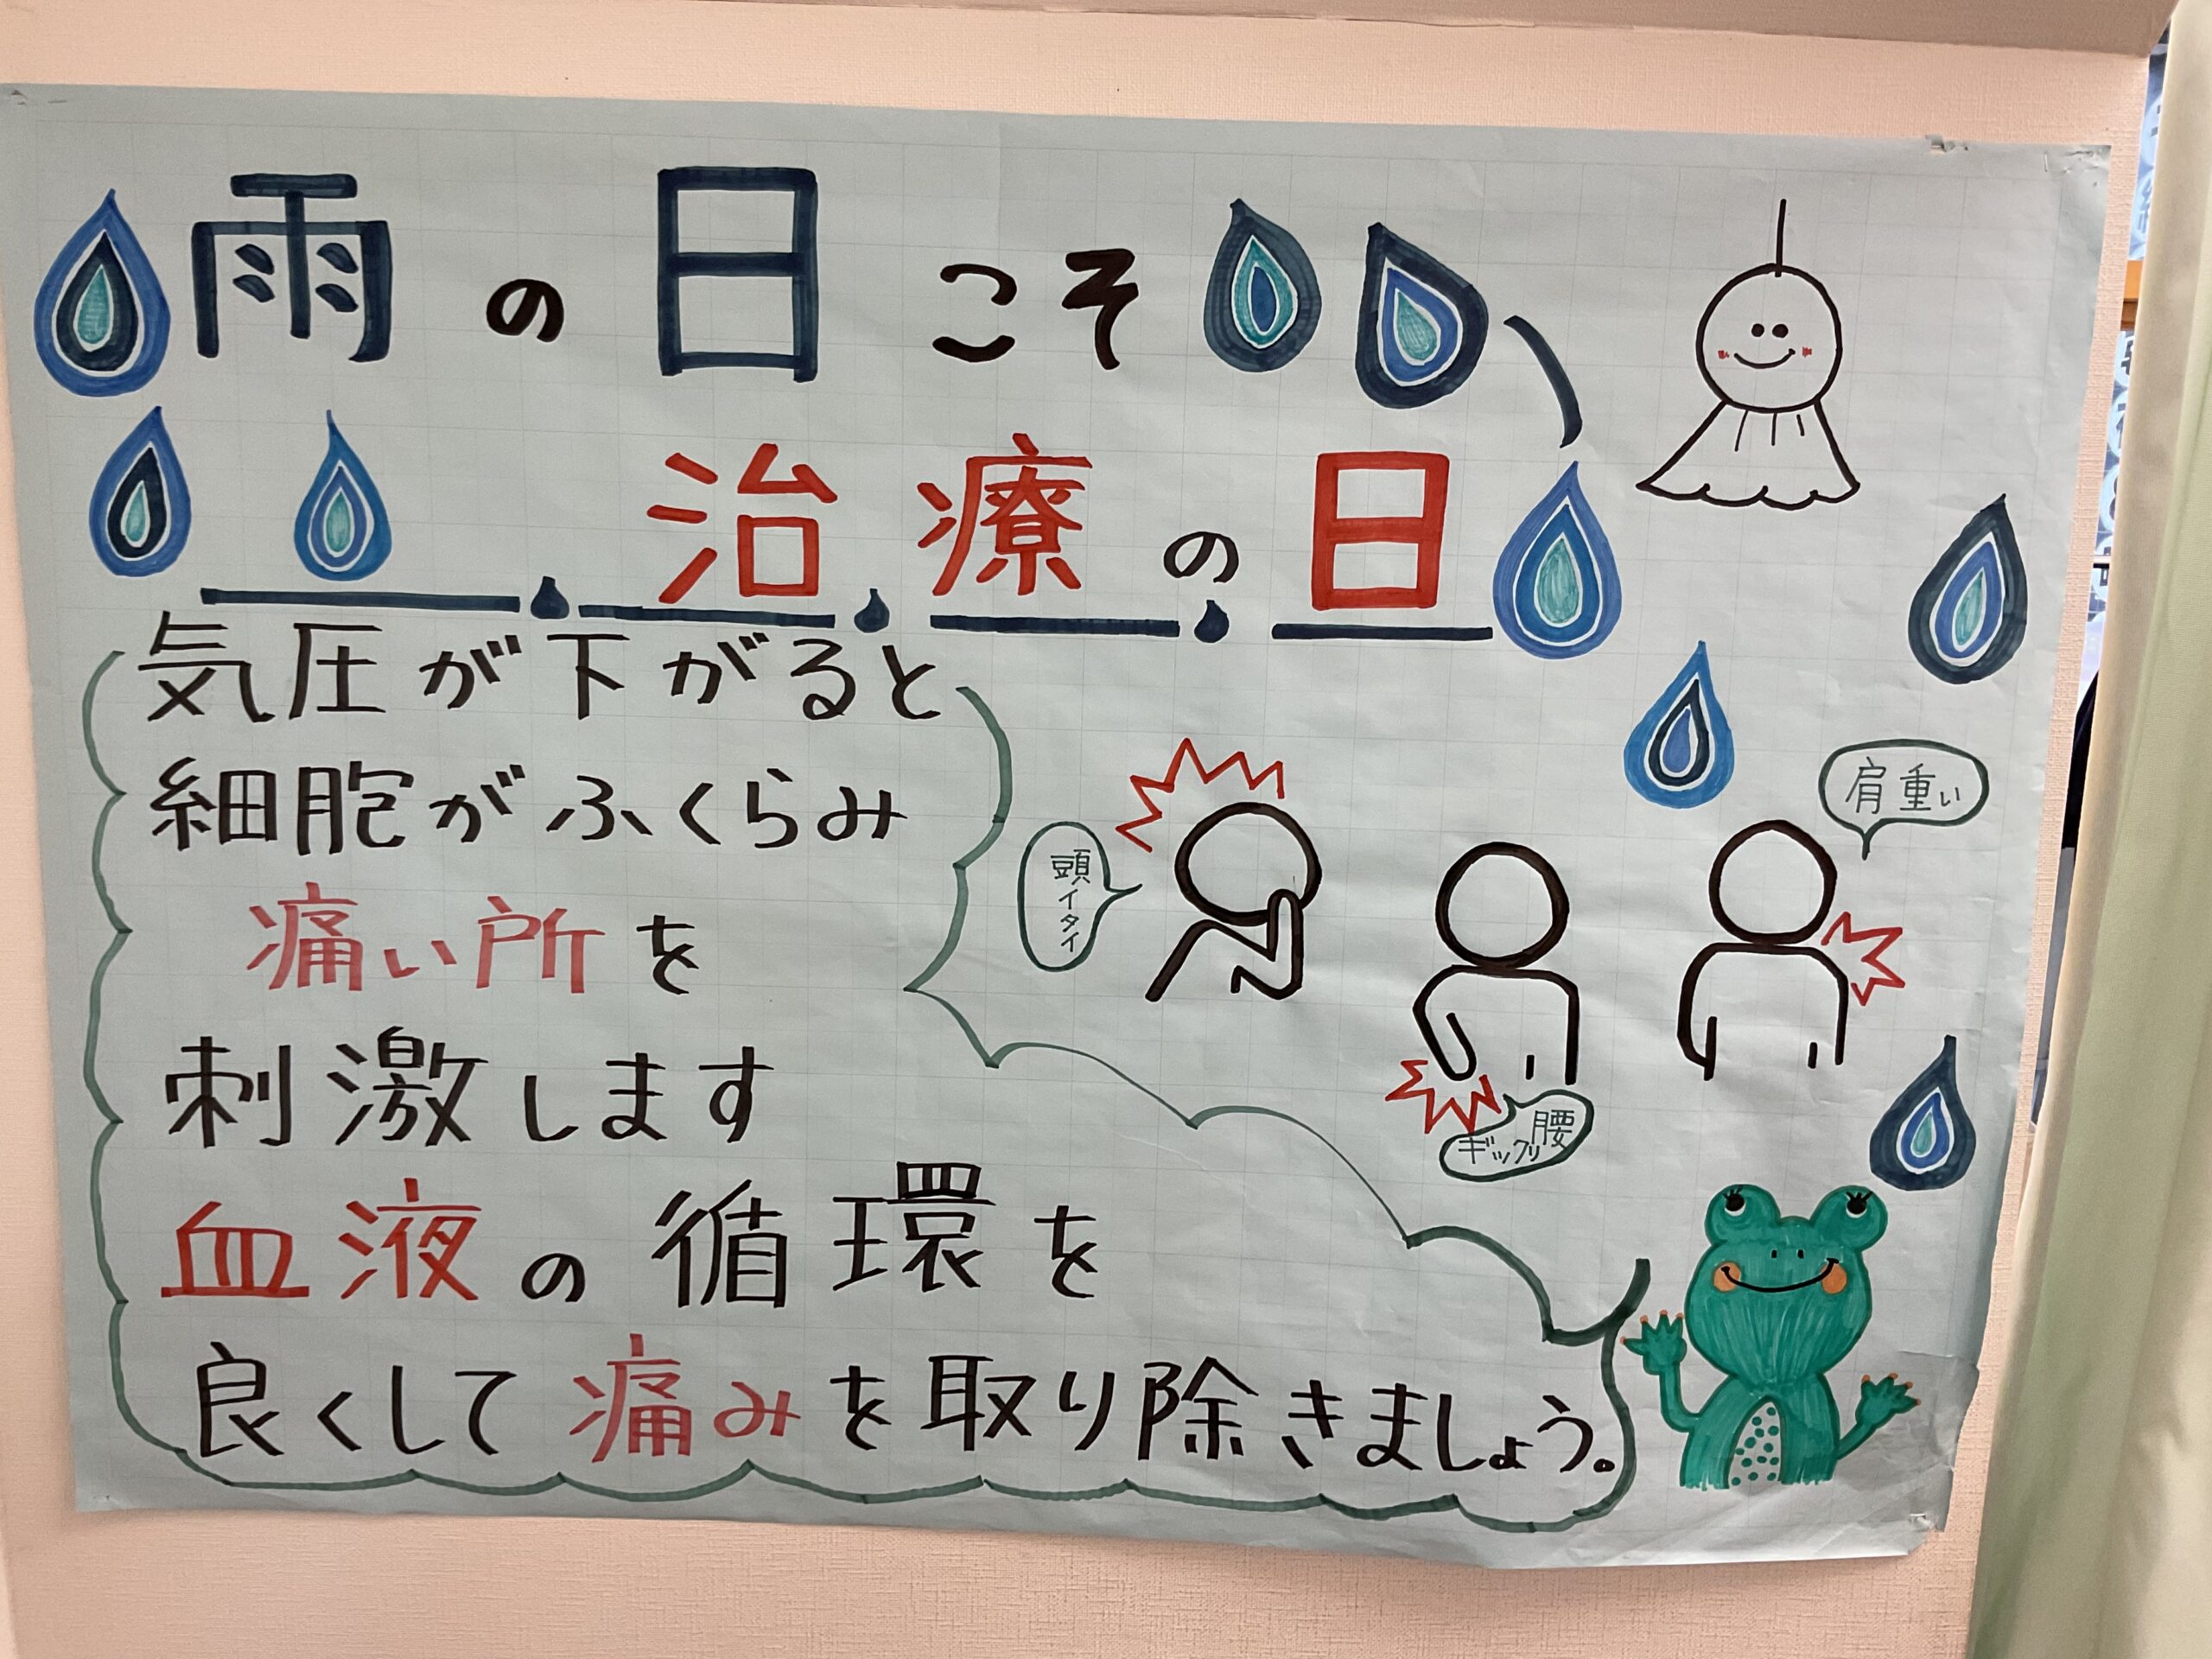 雨の日こそ
治療の日
気圧が下がると
細胞がふくらみ
痛い所を
刺激します
血液の循環を
良くして痛みを取り除きましょう。
頭イタイ
ギックリ腰
肩重い